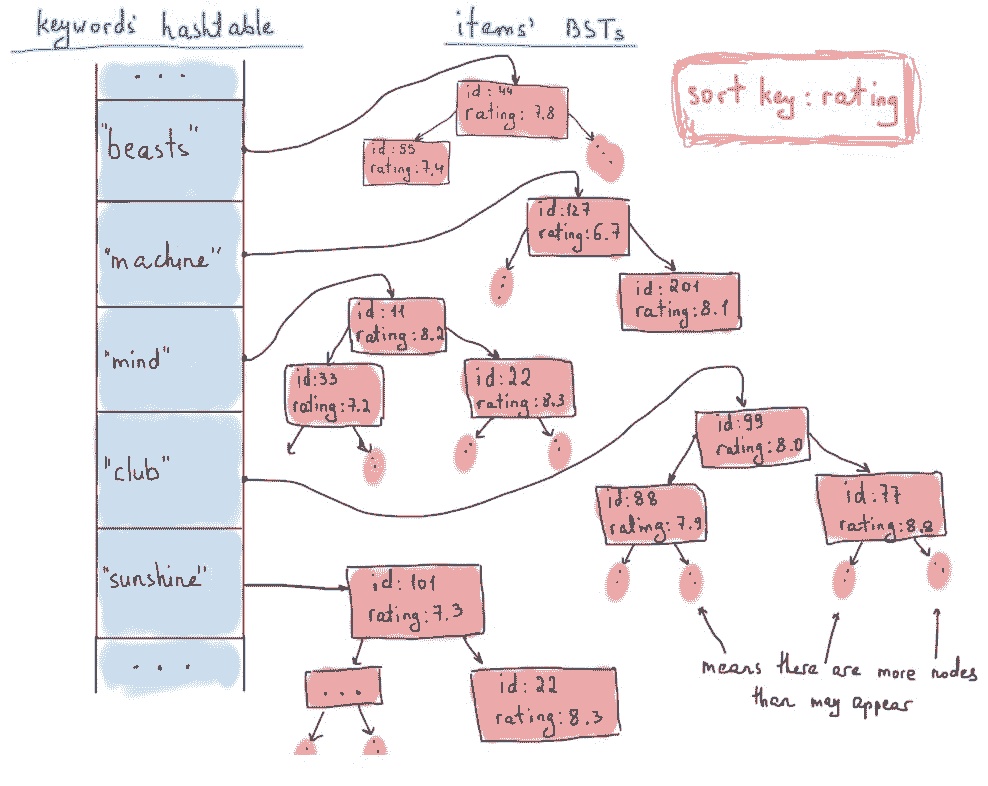 keywords' hashtable
items' BSTs
sort key: rating
...
"beasts"
"machine"
"mind"
"club"
"sunshine"
...
id: 44
rating: 7.8
id: 55
rating: 7.4
...
id: 127
rating: 6.7
...
id: 201
rating: 8.1
id: 11
rating: 8.2
id: 33
rating: 7.2
id: 22
rating: 8.3
id: 99
rating: 8.0
id: 88
rating: 7.9
id: 77
rating: 8.8
id: 101
rating: 7.3
...
id: 22
rating: 8.3
means there are more nodes
than may appear